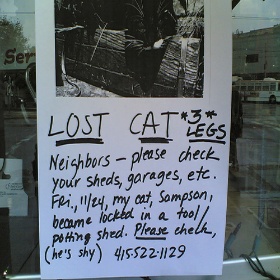 Ser
LOST CAT *3* LEGS
Neighbors – please check
your sheds, garages, etc.
Fri., 11/24, my cat, Sampson,
became locked in a tool/
potting shed. Please check,
(he's shy) 415-522-1129